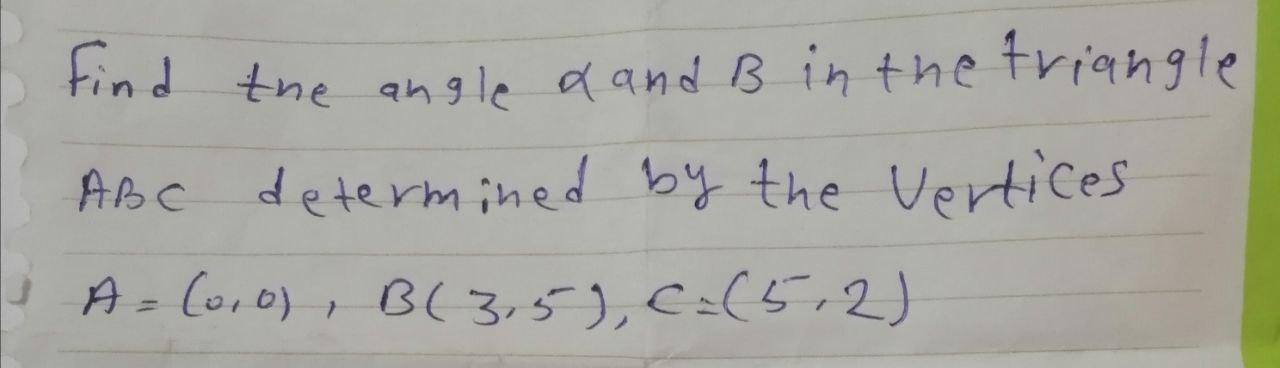 Find the angle α and B in the triangle
ABC determined by the Vertices
A = (0,0), B(3,5), C=(5,2)